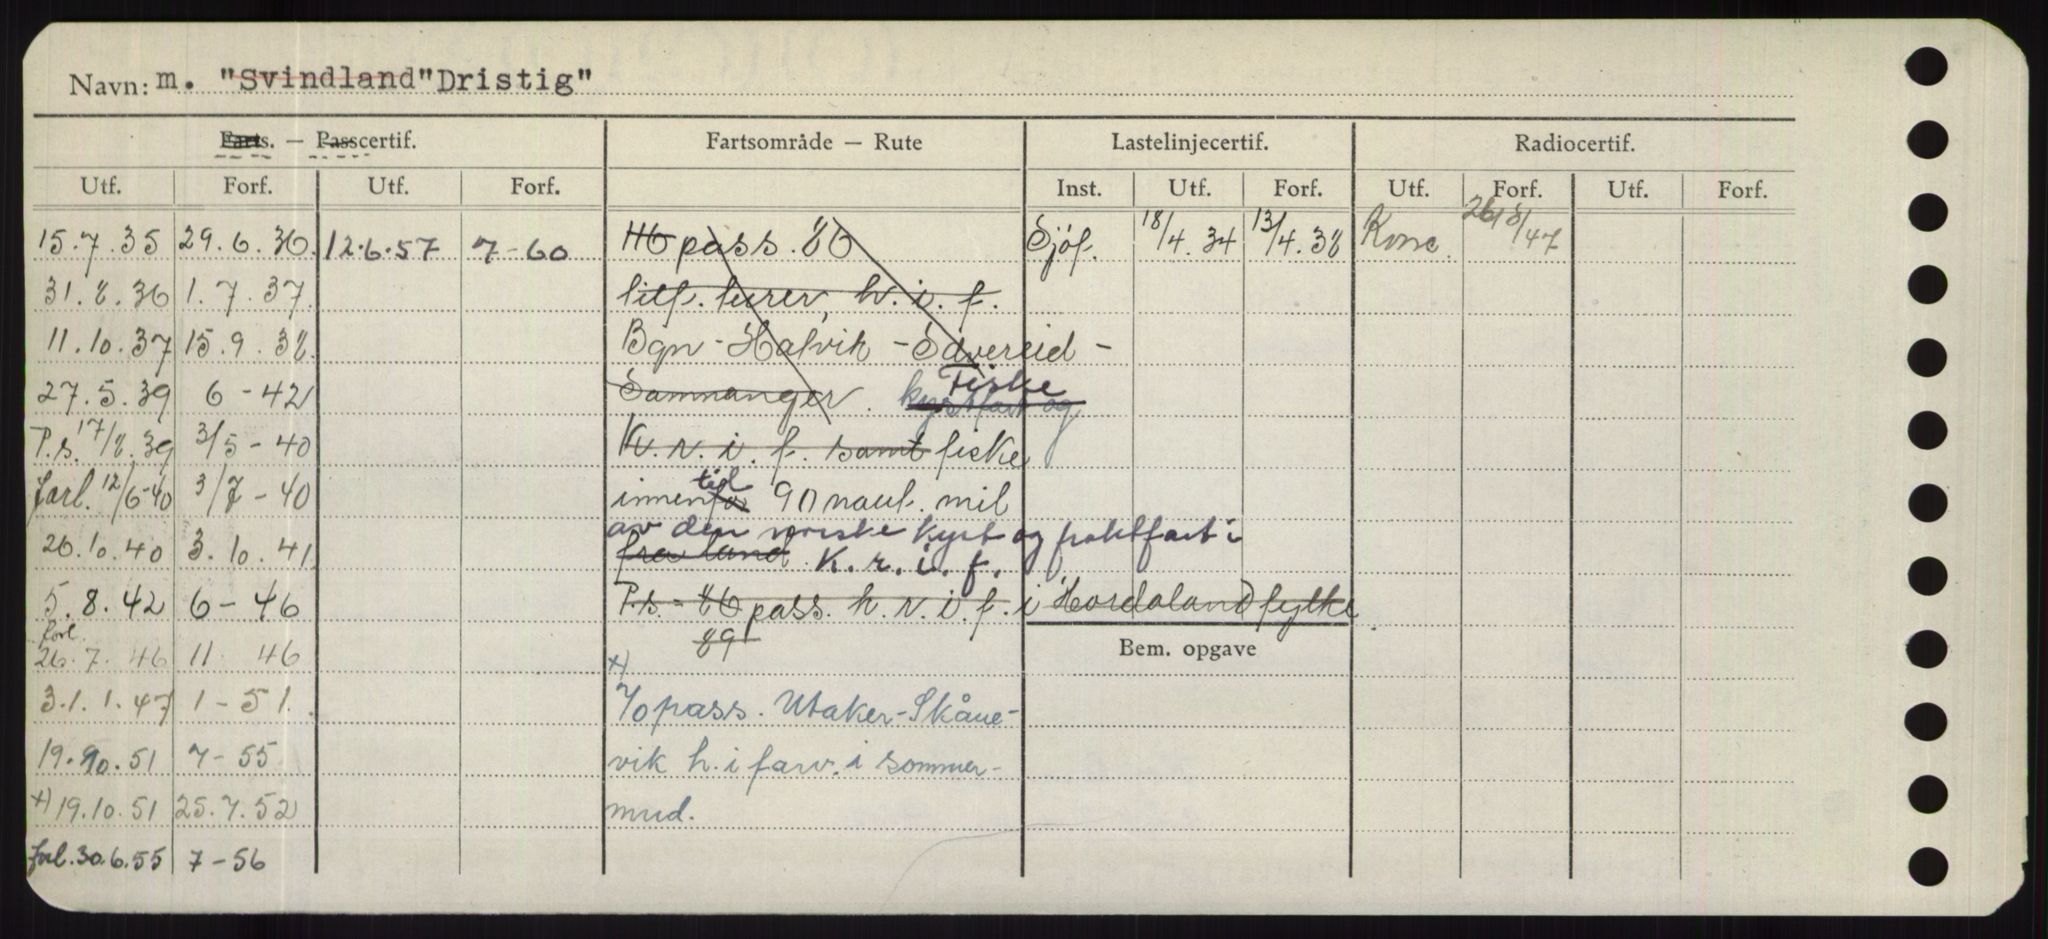 Navn: m. "Svindland" Dristig"
Farts. — Passcertif. Fartsområde — Rute Lastelinjecertif. Radiocertif.
Utf. Forf. Utf. Forf. Inst. Utf. Forf. Utf. Forf. Utf. Forf.
15.7.35 29.6.36. 12.6.57 7-60 pass. 86 Sjöf. 18/4.34 13/4.38 26/8/47
31.8.36 1.7.37. turer, h.i.f.
11.10.37 15.9.38. Bgn - Hatvik - Sævereid -
27.5.39 6-42 Samnanger. kystfart og Fiske
P.s. 17/8.39 3/5-40 K.r.i.f. samt fiske
forl. 12/6-40 3/7-40 innenfor til 90 naut. mil
av den norske kyst og fraktfart i
26.10.40 3.10.41 fra land. K.r.i.f.
5.8.42 6-46 P.s. - 86 pass. h.r.i.f. i Hordaland fylke.
89
Bem. opgave
forl.
26.7.46 11 46
x)
31.1.47 1-51. 70 pass. Utaker-Skåne-
19.10.51 7-55 vik h.i farv. i sommer-
x) 19.10.51 25.7.52 mnd.
forl. 30.6.55 7-56